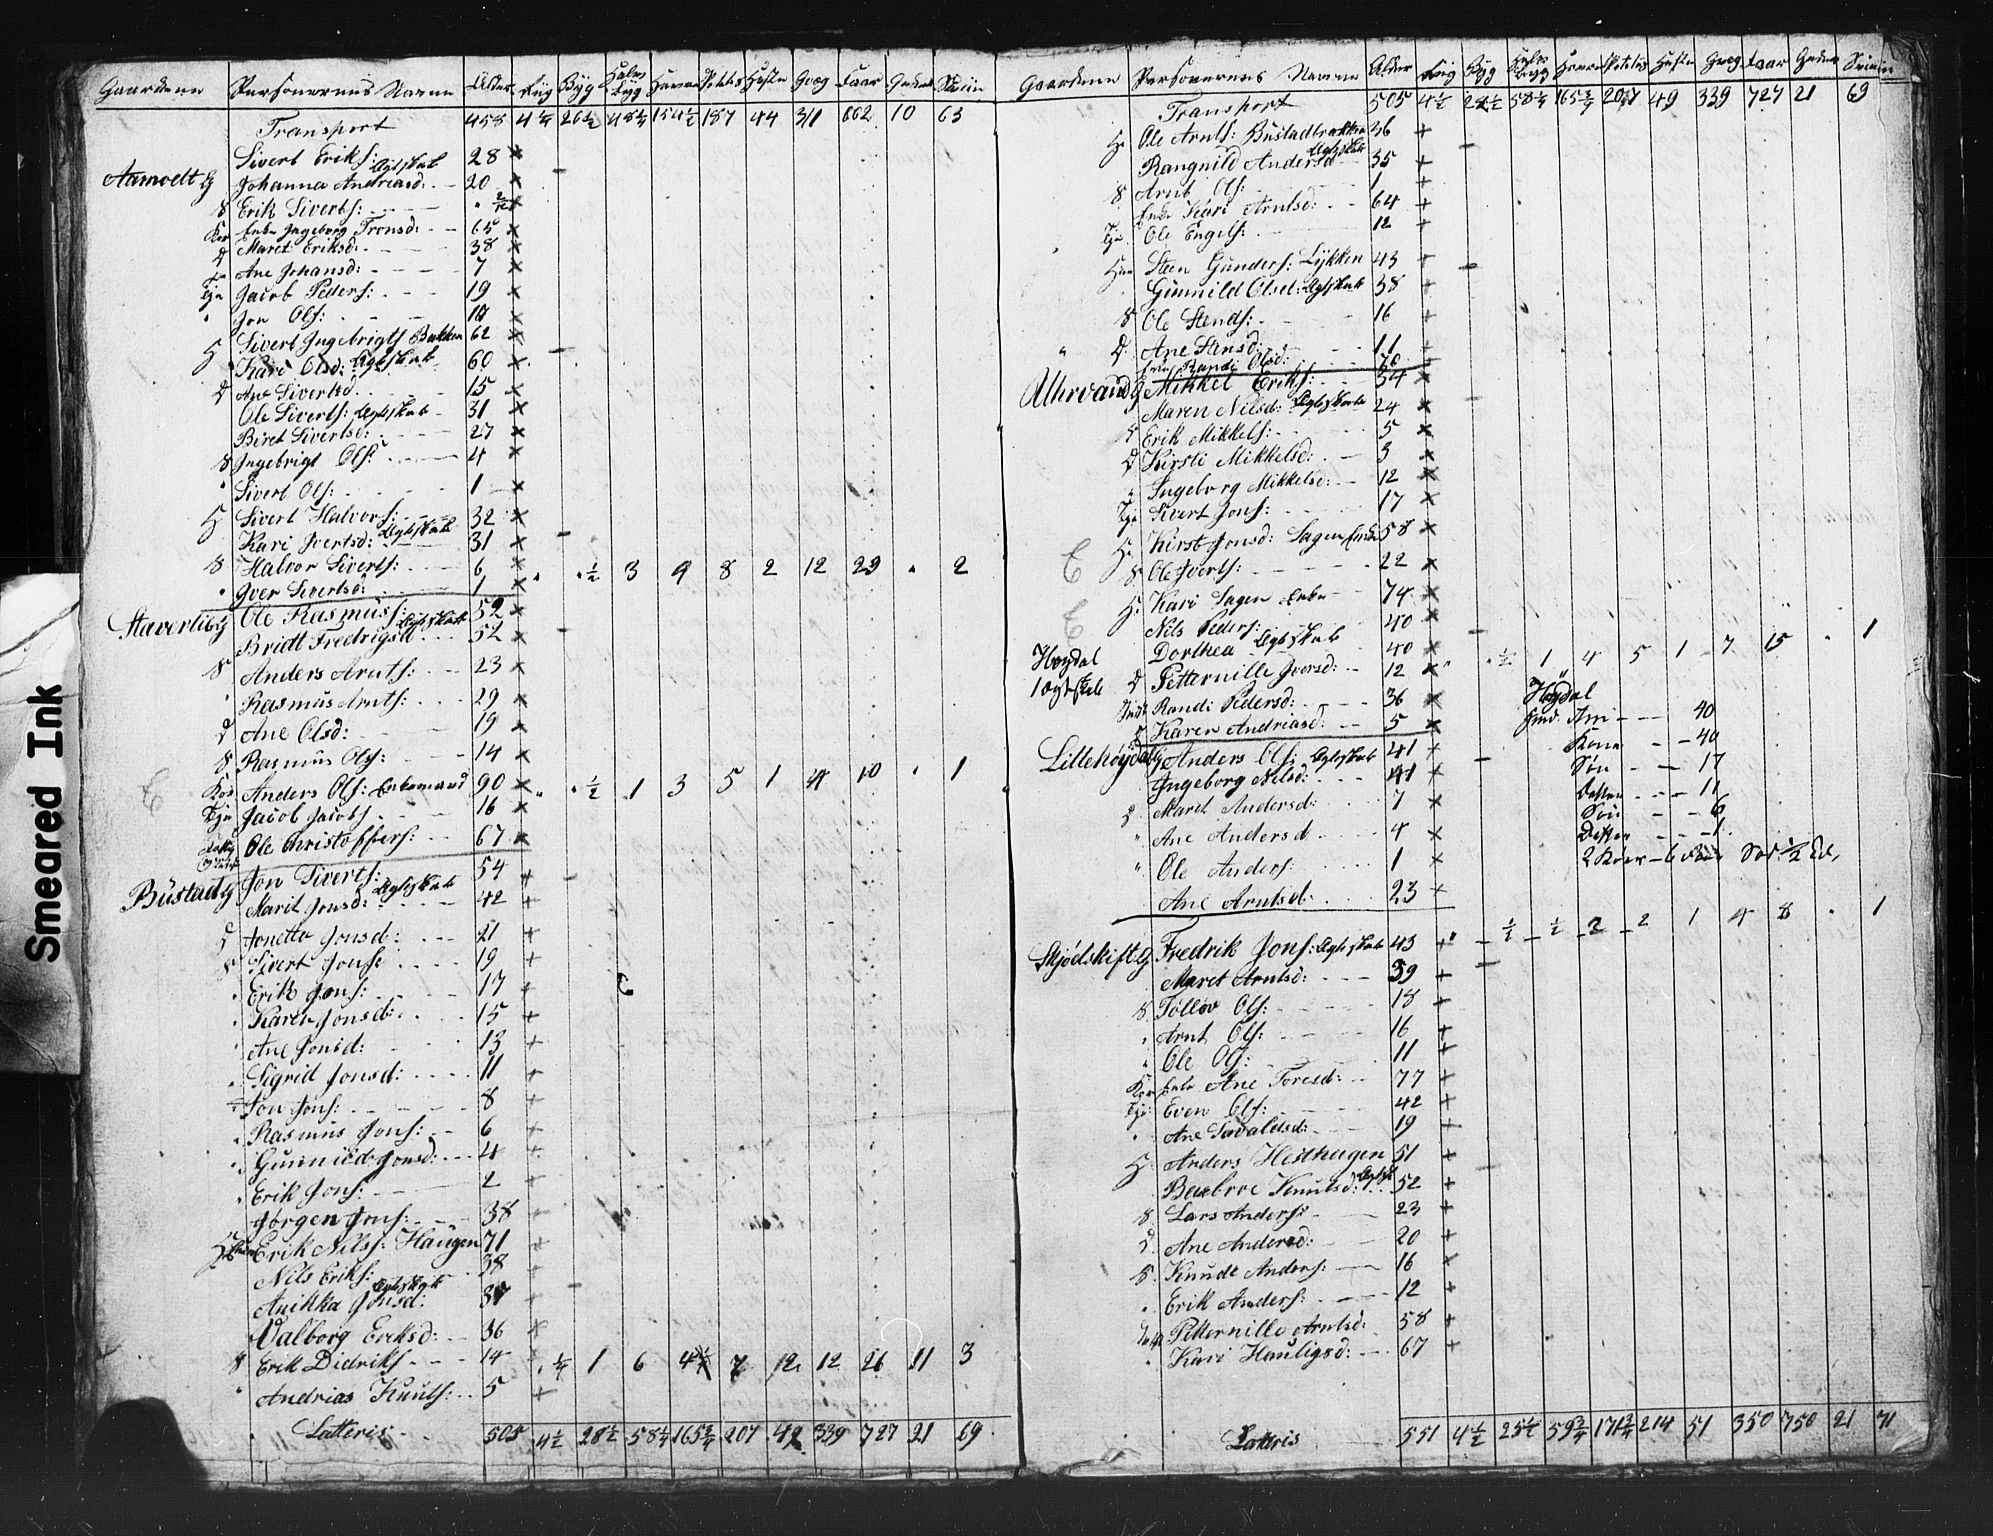 Smeared Ink
Gaardene Personernes Navne Alder Rug Byg Havre Potetes Heste Qvæg Faar Geder Sviin
Transport 458 4 1/4 26 1/2 48 3/4 154 1/2 187 44 311 662 10 63
Sivert Eriks: 28 ×
Aamoelt G Johanna Andriasd: Egteskab 20 ×
S Erik Siverts: ×
Kor Enke Ingeborg Tronsd: 65 ×
D Maret Eriksd: 38 ×
Ane Johansd: 7 ×
Tje Jacob Peders: 19 ×
" Jon Ols: ×
H Sivert Ingebrigts Bakken 62 ×
Kari Olsd: Egteskab 60 ×
D Ane Sivertsd 15 ×
Ole Siverts: Egteskab 31 ×
Beret Sivertsd: 27 ×
S Ingebrigt Ols: 4 ×
" Sivert Ols: 1 ×
H Sivert Halvors: 32 ×
Kari Ivertsd: Egteskab 31 ×
S Halvor Siverts: 6 × " " 1/2 3 9 8 2 12 23 " 2
" Iver Sivertsd: 1 ×
Staverli G Ole Rasmus: 52 ×
Bridt Fredrigsd Egteskab 52 ×
S Anders Arnts: 23 ×
" Rasmus Arnts: 29 ×
D Ane Olsd: 19 ×
S Rasmus Ols: 14 ×
Kor Anders Ols: Enkemand 90 × " " 1/2 1 3 5 1 4 10 " 1
Tje Jacob Jacobs 16 ×
Ole Christoffers: 67 ×
Bustad G Jon Siverts: 54 +
Marit Jonsd: Egteskab 42 +
D Jonetta Jonsd: 21 +
S Sivert Jons: 19 +
" Erik Jons: 17 +
" Karen Jonsd: 15 +
" Ane Jonsd: 13 +
" Sigrid Jonsd: 11 +
Jon Jons: 8 +
" Rasmus Jons: 6 +
" Gunnild Jonsd: 4 +
" Erik Jons: 2 +
Jørgen Jons: 38 +
H Erik Nils: Haugen 71 +
Nils Eriks: 38 +
Anikka Jonsd: Egteskab 37 +
Valborg Eriksd: 36 ×
S Erik Didriks 14 " 1/4 1 6 7 12 12 26 11 3
" Andrias Knuts: 5 +
Latteris 505 4 1/2 28 1/2 58 1/4 165 3/4 207 339 727 21 69
Gaardene Personernes Navne Alder Rug Byg Havre Potetes Heste Qvæg Faar Geder Sviin
Transport 505 4 1/2 58 1/4 165 3/4 207 49 339 727 21 69
H Ole Arnts: Bustadbakken 36 +
Rangnild Andersd Egteskab 35 +
S Arnt Ols: 1 +
Enke Kari Arntsd: 64 +
Tje Ole Engels: 12 +
Steen Gunders: Lykken 43 +
Gunnild Olsd: Egteskab 38 +
S Ole Stends: 16 +
" D Ane Stensd: 11 +
Enke Randi Olsd: 70
Uhrvand G Mikkel Eriks: 34 ×
Maren Nilsd: Egteskab 24 ×
S Erik Mikkels: 5 ×
D Kirsti Mikkelsd: 3 ×
" Ingeborg Mikkelsd: 12 ×
Tje Sivert Jons: 17 ×
H Kirst Jonsd: Sagen Enke 58 ×
S Ole Iverts: 22 ×
H Kari Sagen Enke 74 ×
Nils Peders: 40 ×
Høydal Dorthea Egteskab 40 ×
1 ægteskab D Petternille Iversd: 12 × " " 1/2 1 4 5 1 7 15 " 1
Inds Randi Pedersd: 36 ×
Karen Andriasd: 5 ×
Høydal
40
Kone 40
Søn 17
Datter 11
Søn 6
Datter 1.
2 Køer 6
Lillehøydal G Anders Ols: Egteskab 41 +
Ingeborg Nilsd: 41 ×
D Maret Andersd: 7 ×
" Ane Andersd 4 ×
" Ole Anders: 1 ×
Ane Arntsd: 23 ×
Skjødskift G Fredrik Jons: Egteskab 43 + " 1/2 1/2 2 2 1 4 8 " 1
Maret Arntsd: 39 +
S Tollov Ols: 18 +
" Arnt Ols: 16 +
" Ole Ols: 11 +
Kor Enke Ane Toresd: 77 +
Tje Even Ols: 42 +
" Ane Sivaldsd: 19 +
H Anders Hesthagen 51 +
Barbroe Knutsd: 52 +
S Lars Anders: 23 +
D Ane Andersd: 20 +
S Knudt Anders: 16 ×
" Erik Anders: 12 +
Petternille Arntsd: 58 +
" Kari Hauligsd: 67 +
Latteris 551 4 1/2 59 3/4 171 3/4 214 51 350 750 21 71